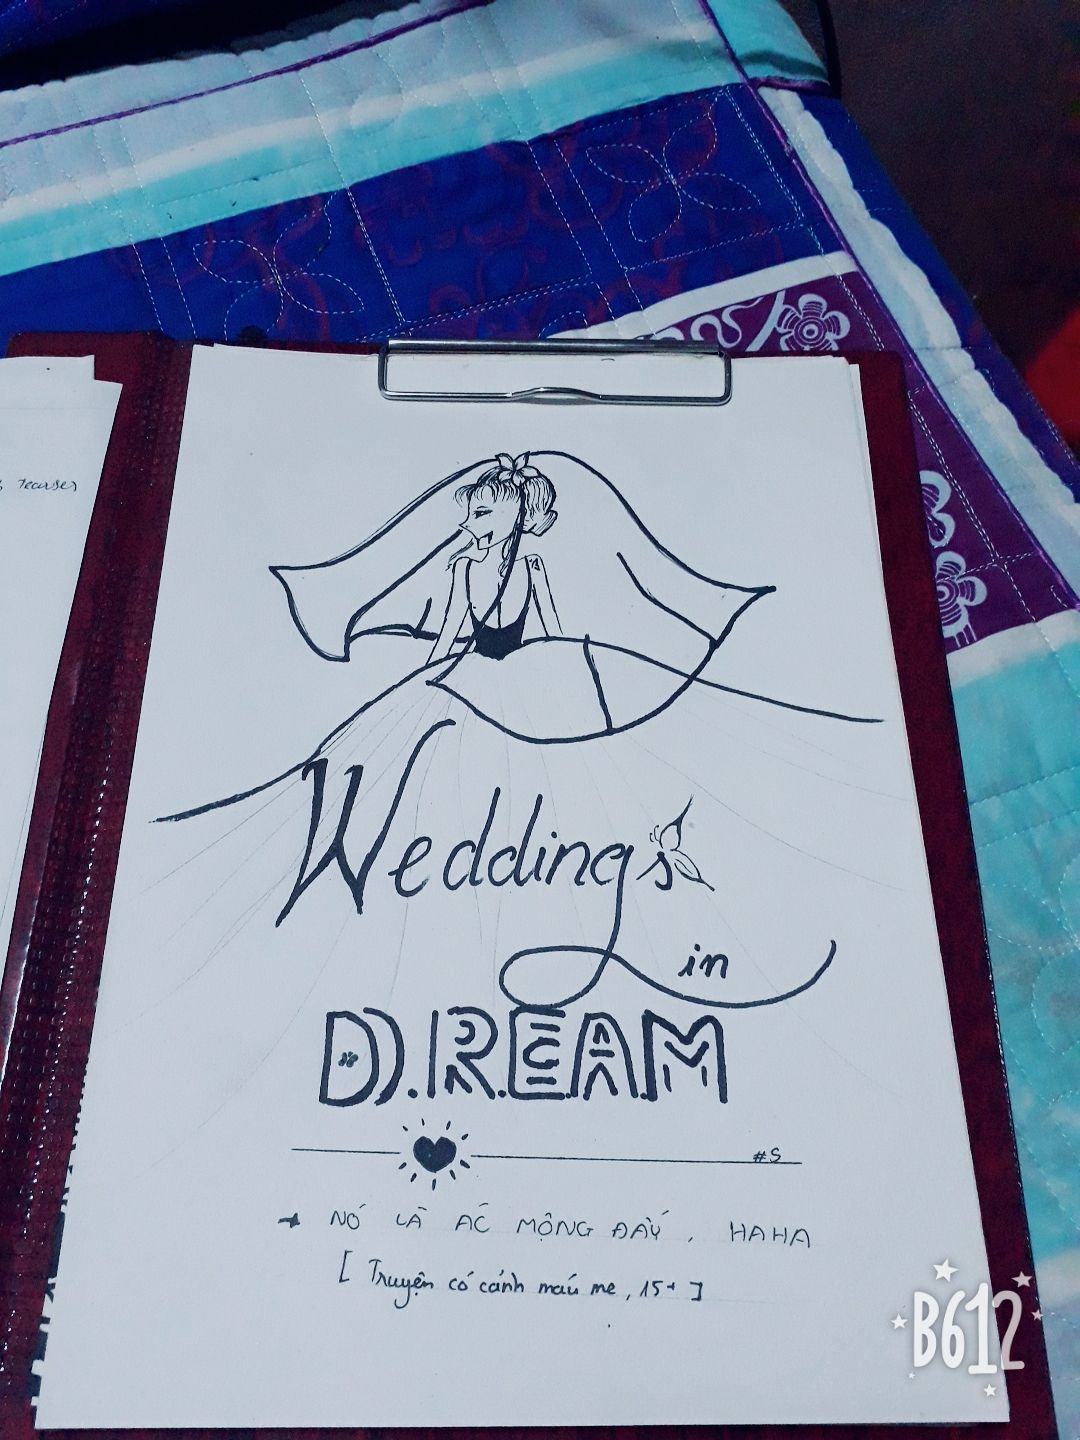 Weddings
in
D.R.E.A.M
#S
→ NÓ LÀ ÁC MỘNG ĐẤY, HAHA
[ Truyện có cảnh máu me, 15+ ]
B612